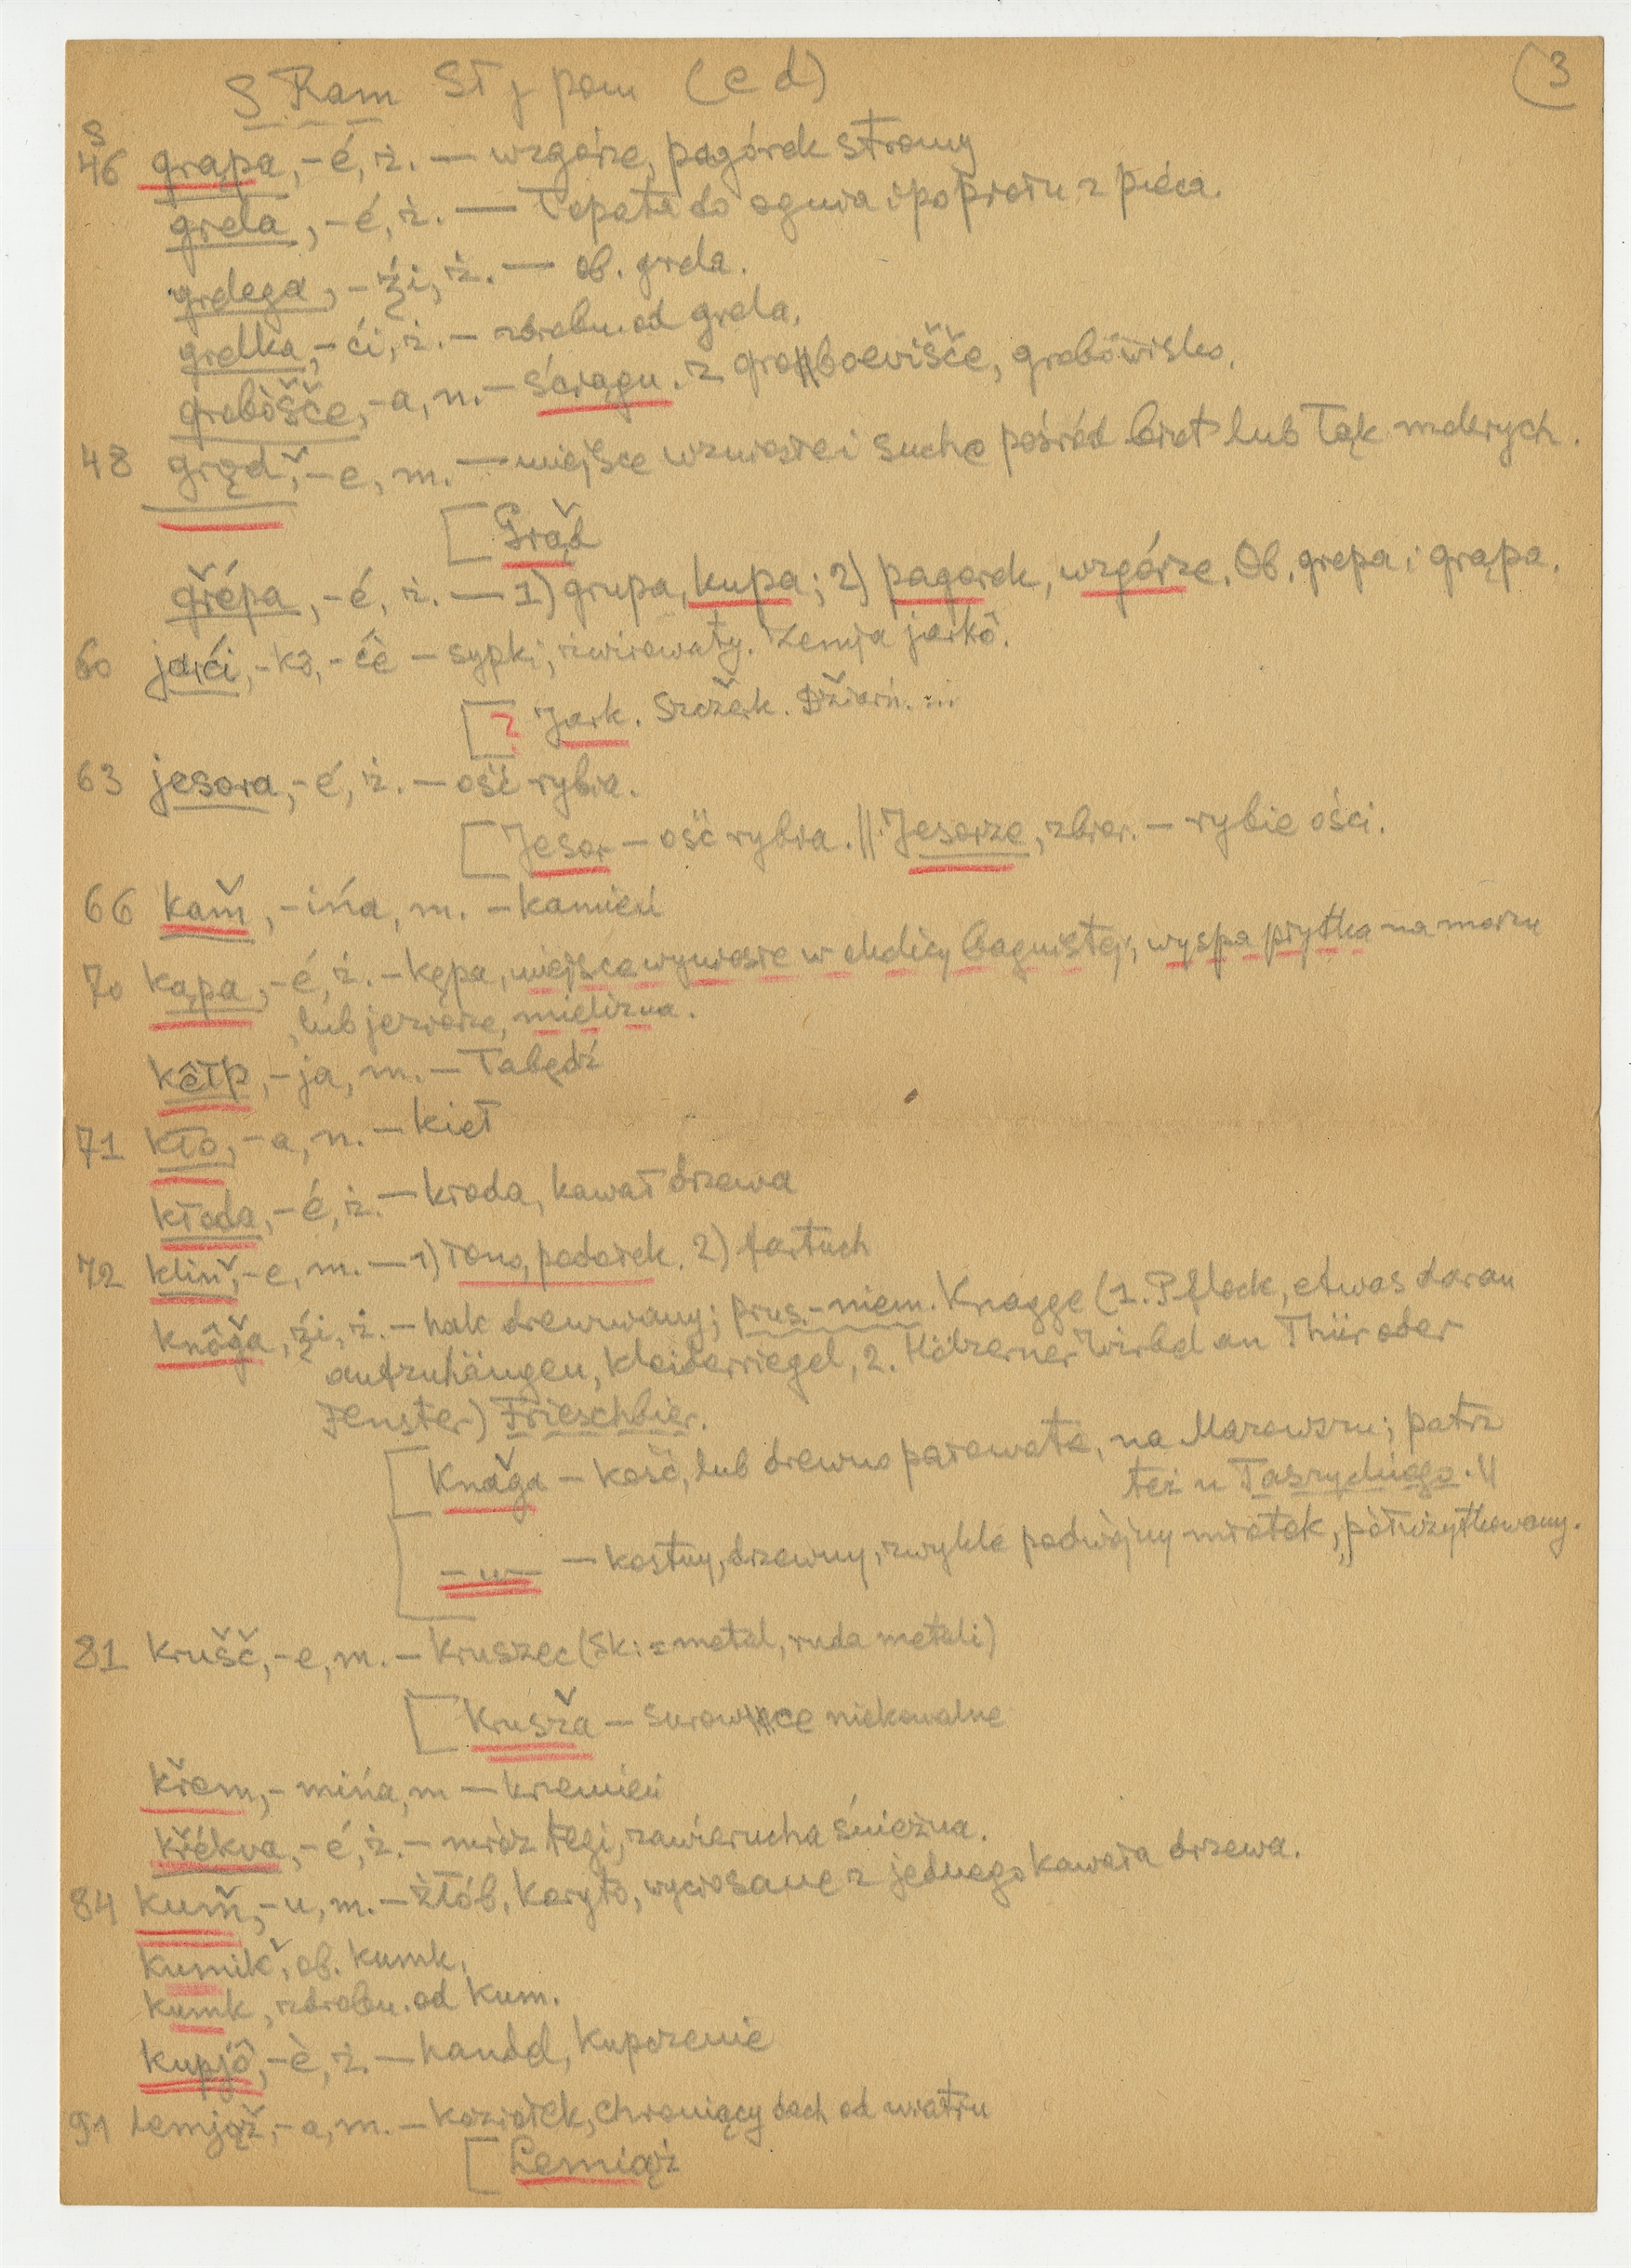 S Ram Sł j pom (c d) (3
S
46 grąpa, -é, ż. — wzgórze, pagórek stromy
grela, -é, ż. — Łopata do ognia i popiołu z pieca.
grelega, -źi, ż. — ob. grela.
grelka, -ći, ż. — zdrobn. od grela.
grebòšče, -a, n. — ściągn. z groboevišče, grobówisko.
48 grąd̆, -e, m. — miejsce wzniosłe i suche pośród błot lub łąk mokrych.
[Grąd
gřépa, -é, ż. — 1) grupa, kupa; 2) pagorek, wzgórze. Ob. grepa i grąpa.
60 jarći, -kô, -ćê — sypki, żwirowaty. Zemja jarkô.
[? Jark. Szczerk. Džiarń. ...
63 jesora, -é, ż. — ość rybia.
[Jesor — ość rybia. || Jesorze, zbior. — rybie ości.
66 kam̆, -ińa, m. — kamień
70 kąpa, -é, ż. — kępa, miejsce wyniosłe w okolicy bagnistej, wyspa płytka na morzu
lub jeziorze, mielizna.
kêłp, -ja, m. — Łabędź
71 kło, -a, n. — kieł
kłoda, -é, ż. — kłoda, kawał drzewa
72 klin̆, -e, m. — 1) łono, podołek. 2) fartuch
knôğa, źi, ż. — hak drewniany; prus.-niem. Knagge (1. Pflock, etwas daran
aufzuhängen, Kleiderriegel, 2. Hölzerner Wirbel an Thür oder
Fenster) Frieschbier.
[Knağa — kość, lub drewno parowata, na Mazowszu; patrz
też u Taszyckiego. ||
—„— — kostny, drzewny, zwykle podwójny młotek, półużytkowany.
81 krušč, -e, m. — Kruszec (Sk: = metal, ruda metali)
[Krusz̆a — surowce niekowalne
křem, -mińa, m — krzemień
křékva, -é, ż. — mróz tęgi, zawierucha śnieżna.
84 kum̆, -u, m. — żłób, koryto, wyciosane z jednego kawała drzewa.
kumik̆, ob. kumk.
kumk, zdrobn. od kum.
kupjô, -è, ż. — handel, kupczenie
91 Lemjąž, -a, m. — koziołek, chroniący dach od wiatru
[Lemiąż